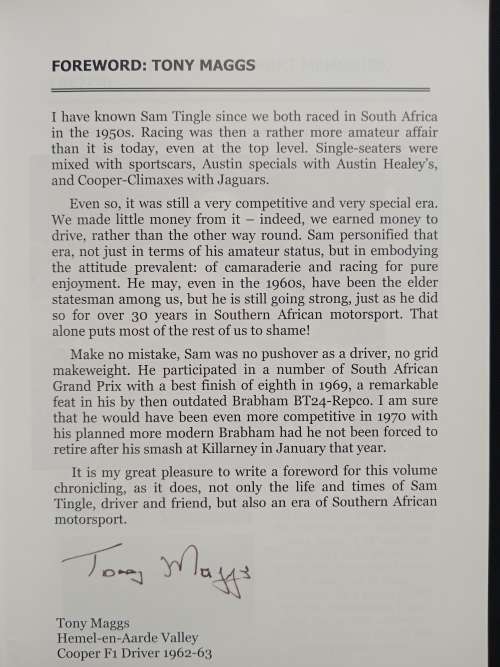 FOREWORD: TONY MAGGS
I have known Sam Tingle since we both raced in South Africa
in the 1950s. Racing was then a rather more amateur affair
than it is today, even at the top level. Single-seaters were
mixed with sportscars, Austin specials with Austin Healey's,
and Cooper-Climaxes with Jaguars.
Even so, it was still a very competitive and very special era.
We made little money from it – indeed, we earned money to
drive, rather than the other way round. Sam personified that
era, not just in terms of his amateur status, but in embodying
the attitude prevalent: of camaraderie and racing for pure
enjoyment. He may, even in the 1960s, have been the elder
statesman among us, but he is still going strong, just as he did
so for over 30 years in Southern African motorsport. That
alone puts most of the rest of us to shame!
Make no mistake, Sam was no pushover as a driver, no grid
makeweight. He participated in a number of South African
Grand Prix with a best finish of eighth in 1969, a remarkable
feat in his by then outdated Brabham BT24-Repco. I am sure
that he would have been even more competitive in 1970 with
his planned more modern Brabham had he not been forced to
retire after his smash at Killarney in January that year.
It is my great pleasure to write a foreword for this volume
chronicling, as it does, not only the life and times of Sam
Tingle, driver and friend, but also an era of Southern African
motorsport.
Tony Maggs
Tony Maggs
Hemel-en-Aarde Valley
Cooper F1 Driver 1962-63